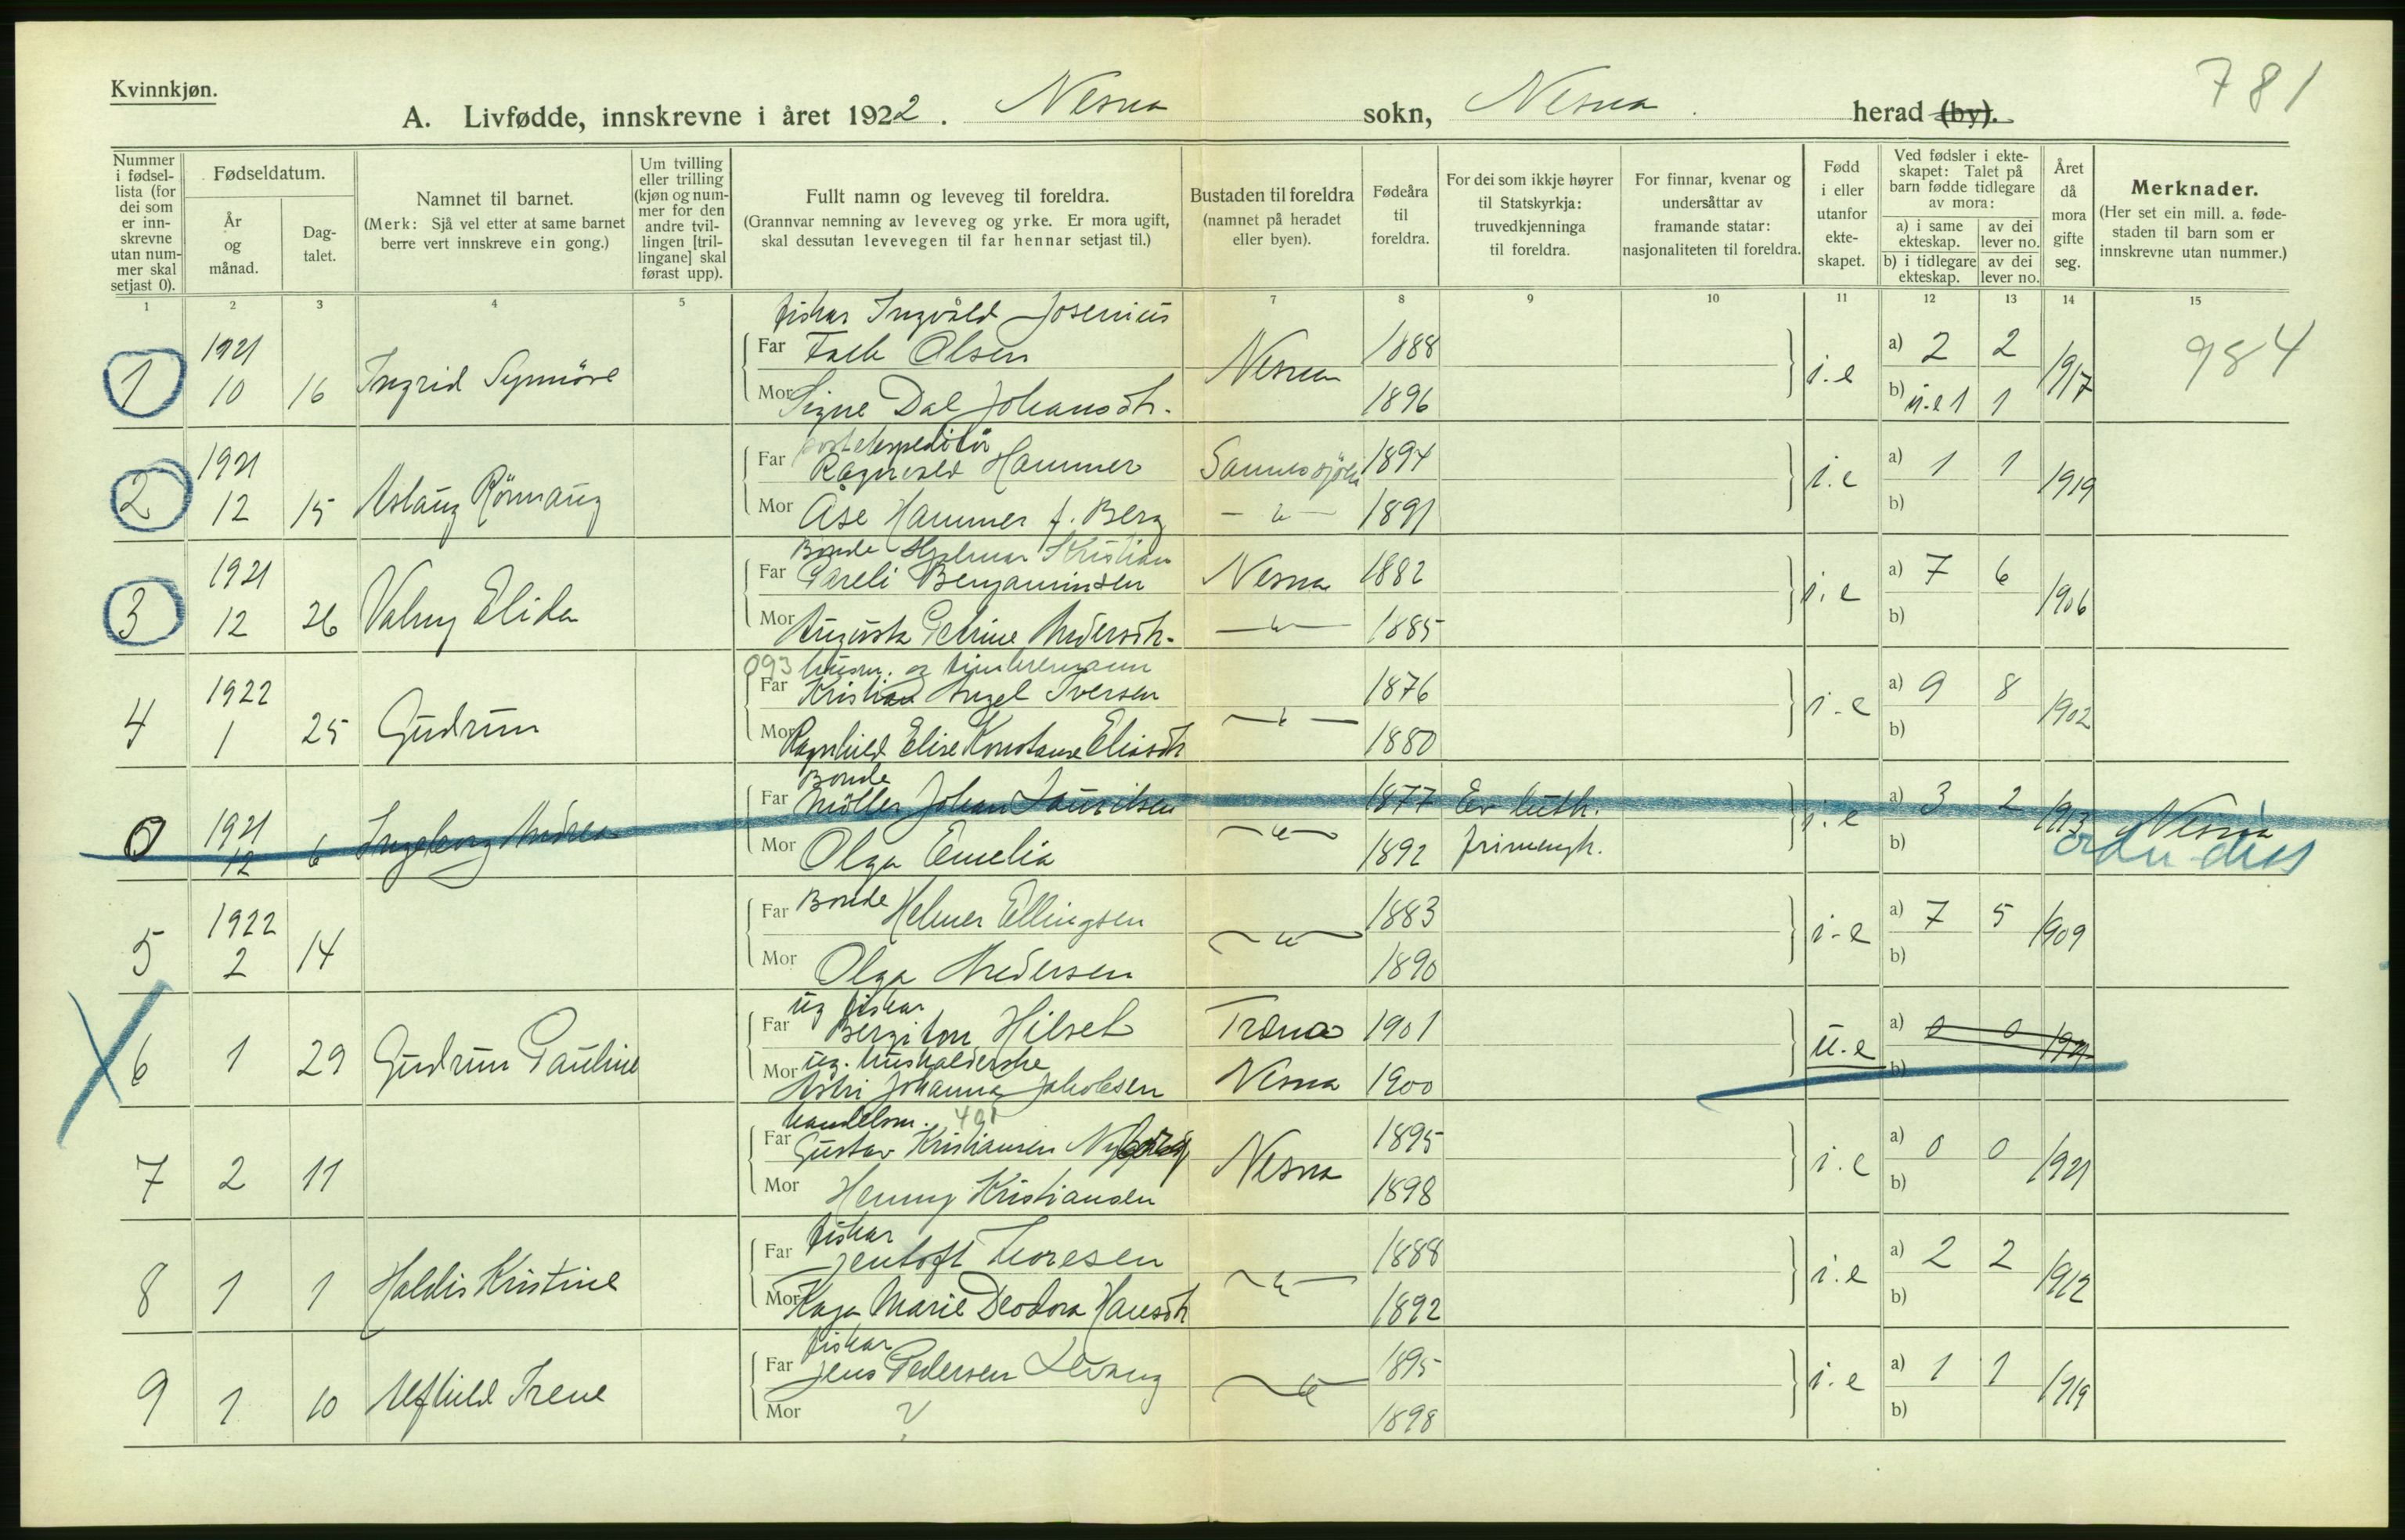 Kvinnkjøn.
781
A. Livfødde, innskrevne i året 1922. Nesna sokn, Nesna herad (by).
Nummer i fødsel-lista (for dei som er inn-skrevne utan num-mer skal setjast 0).
Fødseldatum.
År og månad.
Dag-talet.
Namnet til barnet.
(Merk: Sjå vel etter at same barnet berre vert innskreve ein gong.)
Um tvilling eller trilling (kjøn og num-mer for den andre tvil-lingen [tril-lingane] skal førast upp).
Fullt namn og leveveg til foreldra.
(Grannvar nemning av leveveg og yrke. Er mora ugift, skal dessutan levevegen til far hennar setjast til.)
Bustaden til foreldra (namnet på heradet eller byen).
Fødeåra til foreldra.
For dei som ikkje høyrer til Statskyrkja: truvedkjenninga til foreldra.
For finnar, kvenar og undersåttar av framande statar: nasjonaliteten til foreldra.
Fødd i eller utanfor ekte-skapet.
Ved fødsler i ekte-skapet: Talet på barn fødde tidlegare av mora:
a) i same ekteskap.
av dei lever no.
b) i tidlegare ekteskap.
av dei lever no.
Året då mora gifte seg.
Merknader.
(Her set ein mill. a. føde-staden til barn som er innskrevne utan nummer.)
1 2 3 4 5 7 8 9 10 11 12 13 14 15
fiskar Ingvald Josenius
1 1921 10 16 Ingrid Synnöve Far Falk Olsen Nesna 1888 i.e a) 2 2 1917 984
Mor Signe Dal Johansdtr. 1896 b) u.e 1 1
postekspeditör
2 1921 12 15 Aslaug Rönnaug Far Ragnvald Hammer Sannessjöen 1894 i.e a) 1 1 1919
Mor Åse Hammer f. Berg — " — 1891 b)
Bonde Hjalmar Kristian
3 1921 12 26 Valny Elida Far Pareli Benjaminsen Nesna 1882 i.e a) 7 6 1906
Mor Augusta Petrine Andersdtr. — " — 1885 b)
093 husm. og timbermann
4 1922 1 25 Gudrun Far Kristian Angel Iversen — " — 1876 i.e a) 9 8 1902
Mor Ragnhild Elise Konstanse Eliasdtr 1880 b)
Bonde
0 1921 12 6 Ingeborg Andrea Far Möller Johan Lauritsen — " — 1877 Ev. luth. i.e a) 3 2 1913 Nesna
Mor Olga Emelia 1892 frimengh. b)
5 1922 2 14 Far Bonde Helmer Ellingsen — " — 1883 i.e a) 7 5 1909
Mor Olga Andersen 1890 b)
ug fiskar
6 1 29 Gudrun Pauline Far Bergiton Hilset Træna 1901 u.e a) 0 0 1921
Mor ug. hushalderske
Astri Johanna Jakobsen Nesna 1900 b)
handelsm. 401
7 2 11 Far Gustav Kristiansen Nesna 1895 i.e a) 0 0 1921
Mor Henny Kristiansen 1898 b)
fiskar
8 1 1 Haldis Kristine Far Jentoft Thoresen — " — 1888 i.e a) 2 2 1912
Mor Kaja Marie Deodora Hansdtr 1892 b)
fiskar
9 1 10 Alfhild Irene Far Jens Pedersen Levang — " — 1895 i.e a) 1 1 1919
Mor ? 1898 b)